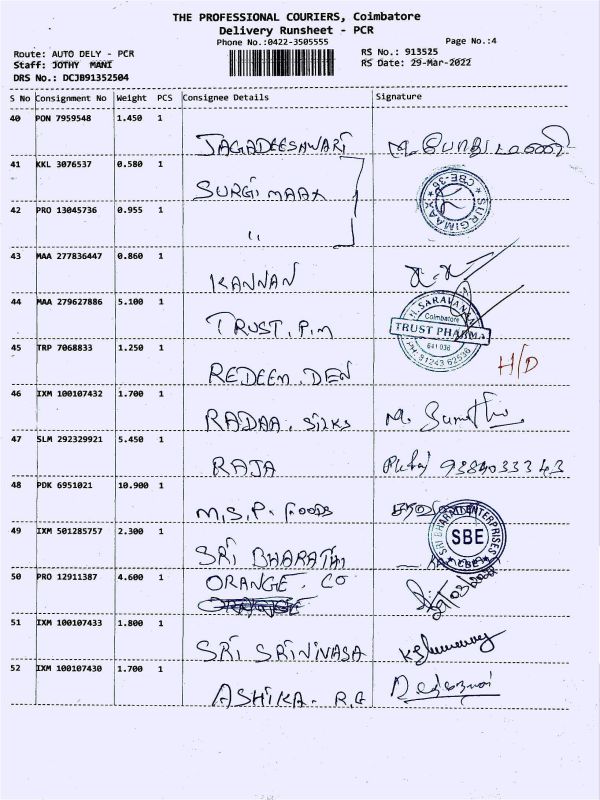 THE PROFESSIONAL COURIERS, Coimbatore
Delivery Runsheet - PCR
Phone No.:0422-3505555
Page No.:4
Route: AUTO DELY - PCR
RS No.: 913525
Staff: JOTHY MANI
RS Date: 29-Mar-2022
DRS No.: DCJB91352504
S No Consignment No Weight PCS Consignee Details Signature
40 PON 7959548 1.450 1
JAGADEESHWARI
41 KKL 3076537 0.580 1
SURGIMAAX
SURGIMAAX CBE-36
42 PRO 13045736 0.955 1
"
43 MAA 277836447 0.860 1
KANNAN
44 MAA 279627886 5.100 1
TRUST. P.M
SARAVANAN
Coimbatore
TRUST PHARMA
641 036
PH: 91243 62536
45 TRP 7068833 1.250 1
REDEEM. DEN H/D
46 IXM 100107432 1.700 1
RADAA. SILKS
47 SLM 292329921 5.450 1
RAJA 9384033343
48 PDK 6951021 10.900 1
M.S.P. FOODS
49 IXM 501285757 2.300 1
SRI BHARATHI
SRI BHARATHI ENTERPRISES
SBE
50 PRO 12911387 4.600 1
ORANGE. CO
51 IXM 100107433 1.800 1
SRI SRINIVASA
52 IXM 100107430 1.700 1
ASHIKA. R.G